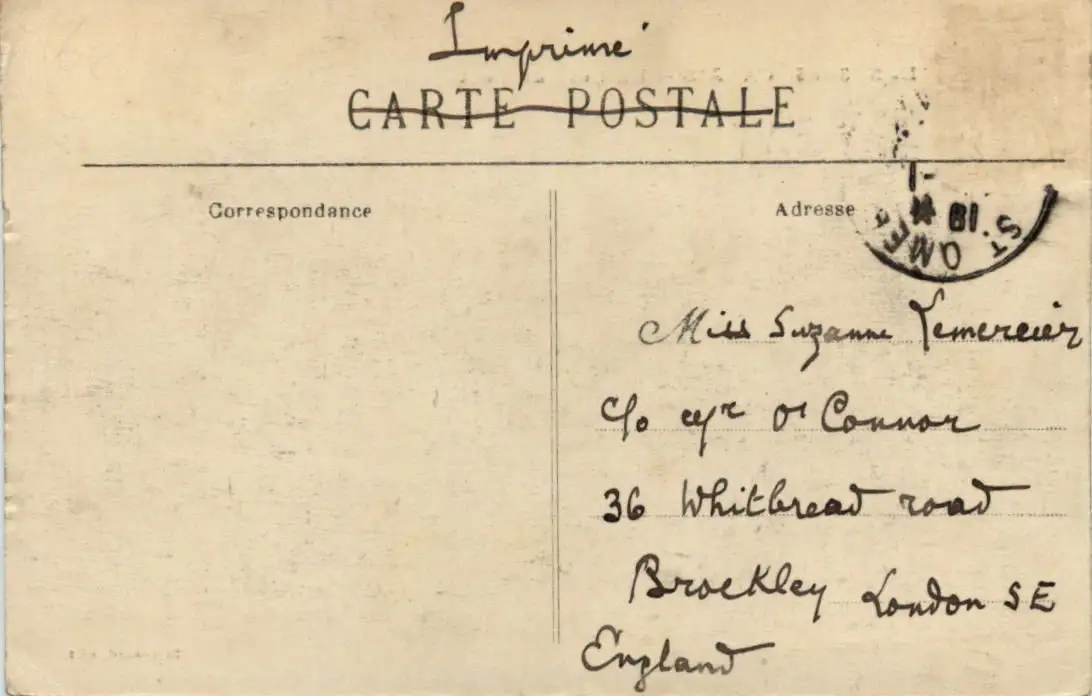 Imprimé
CARTE POSTALE
Correspondance
Adresse
ST OMER
18
Miss Suzanne Lemercier
c/o Mr O' Connor
36 Whitbread road
Brockley London SE
England